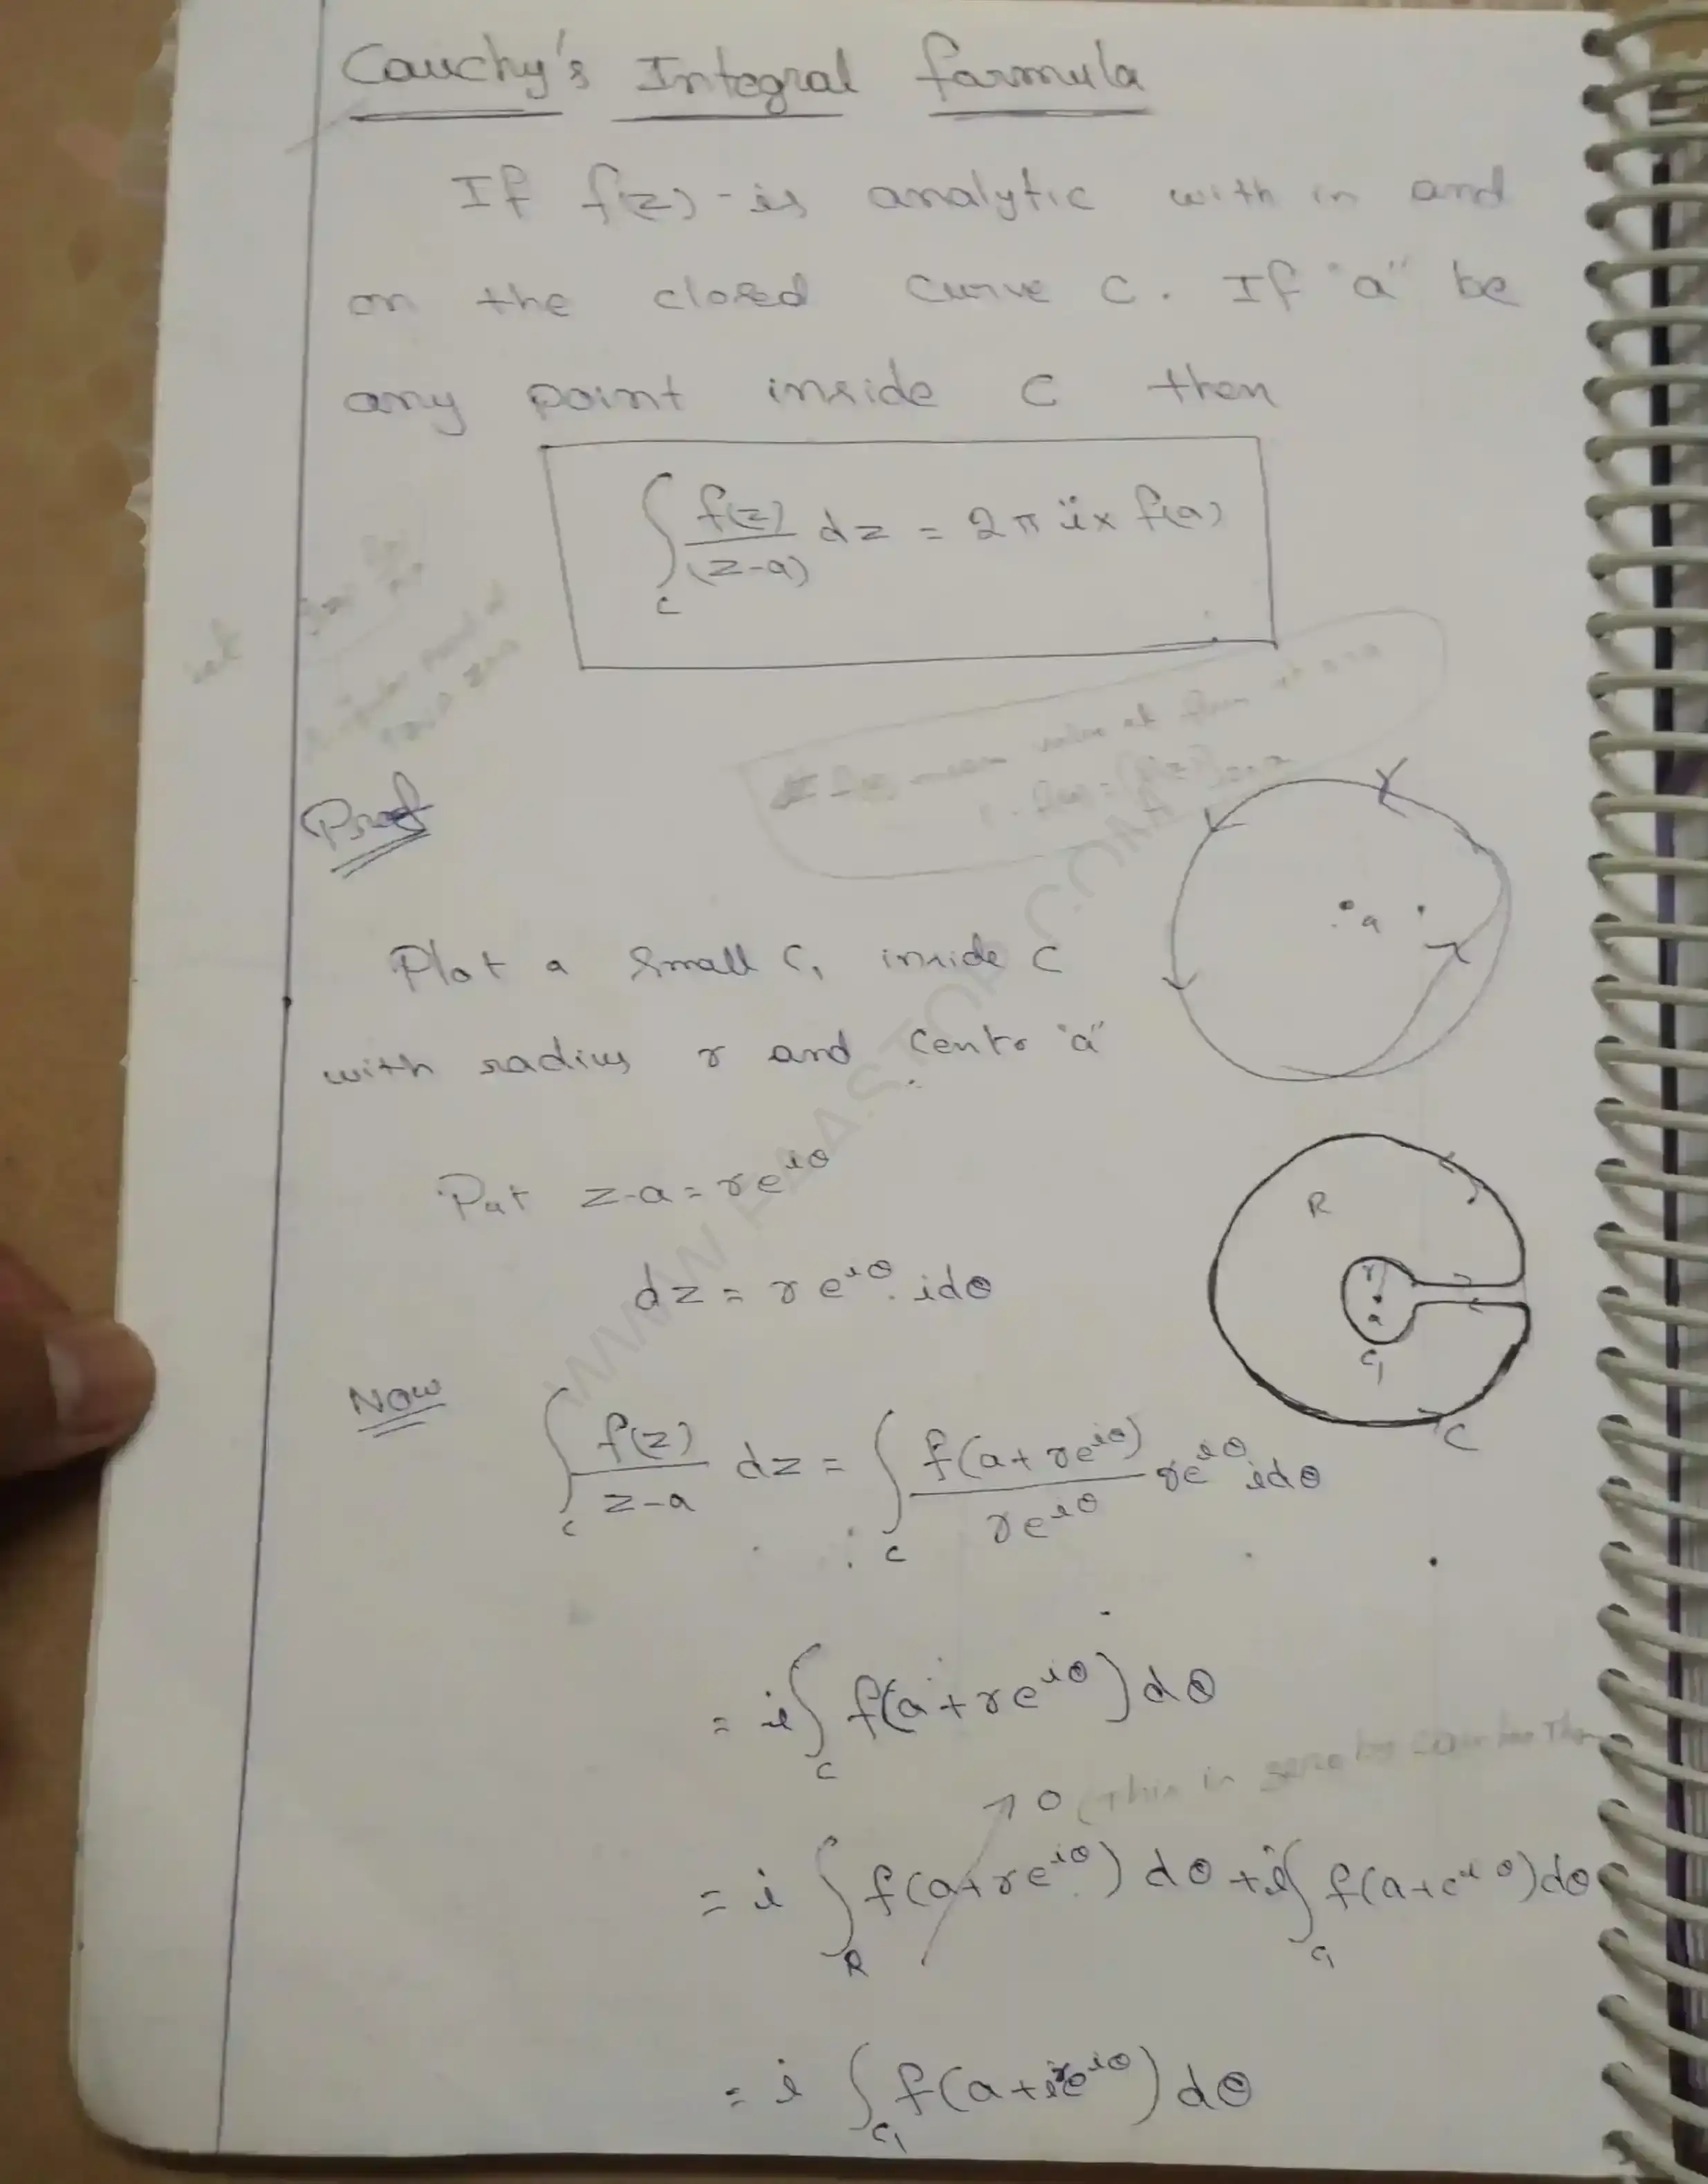 Cauchy's Integral formula
If f(z) - is analytic with in and
on the closed curve C. If "a" be
any point inside C then
∫_C f(z)/(z-a) dz = 2πi x f(a)
mean value at
Proof
a
Plot a small C₁ inside C
with radius r and centre "a"
Put z-a = re^{iθ}
R
r
a
C₁
C
dz = re^{iθ}. idθ
Now ∫_C f(z)/z-a dz = ∫_C f(a+re^{iθ})/re^{iθ} re^{iθ} idθ
= i∫_C f(a+re^{iθ}) dθ
→ 0 (This is zero by
= i ∫_R f(a+re^{iθ}) dθ + i∫_{C₁} f(a+e^{iθ})dθ
= i ∫_{C₁} f(a+re^{iθ}) dθ